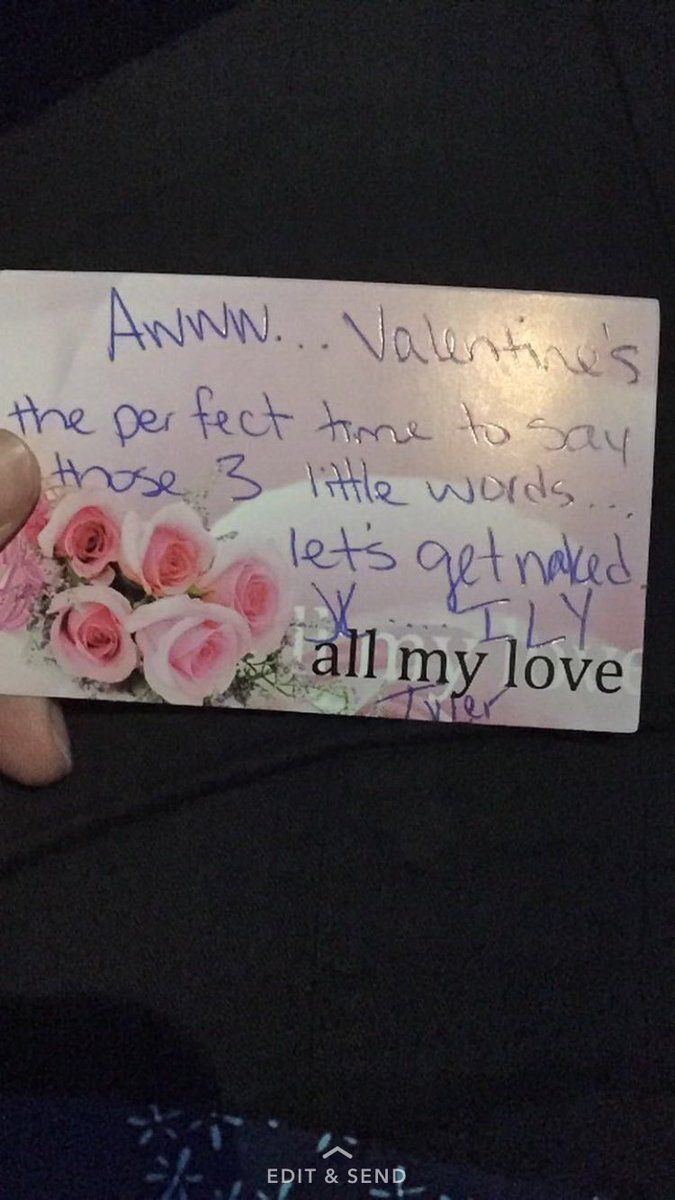 AWWW... Valentine's
the perfect time to say
those 3 little words...
let's get naked.
JK .... ILY
all my love
all my love
Tyler
EDIT & SEND